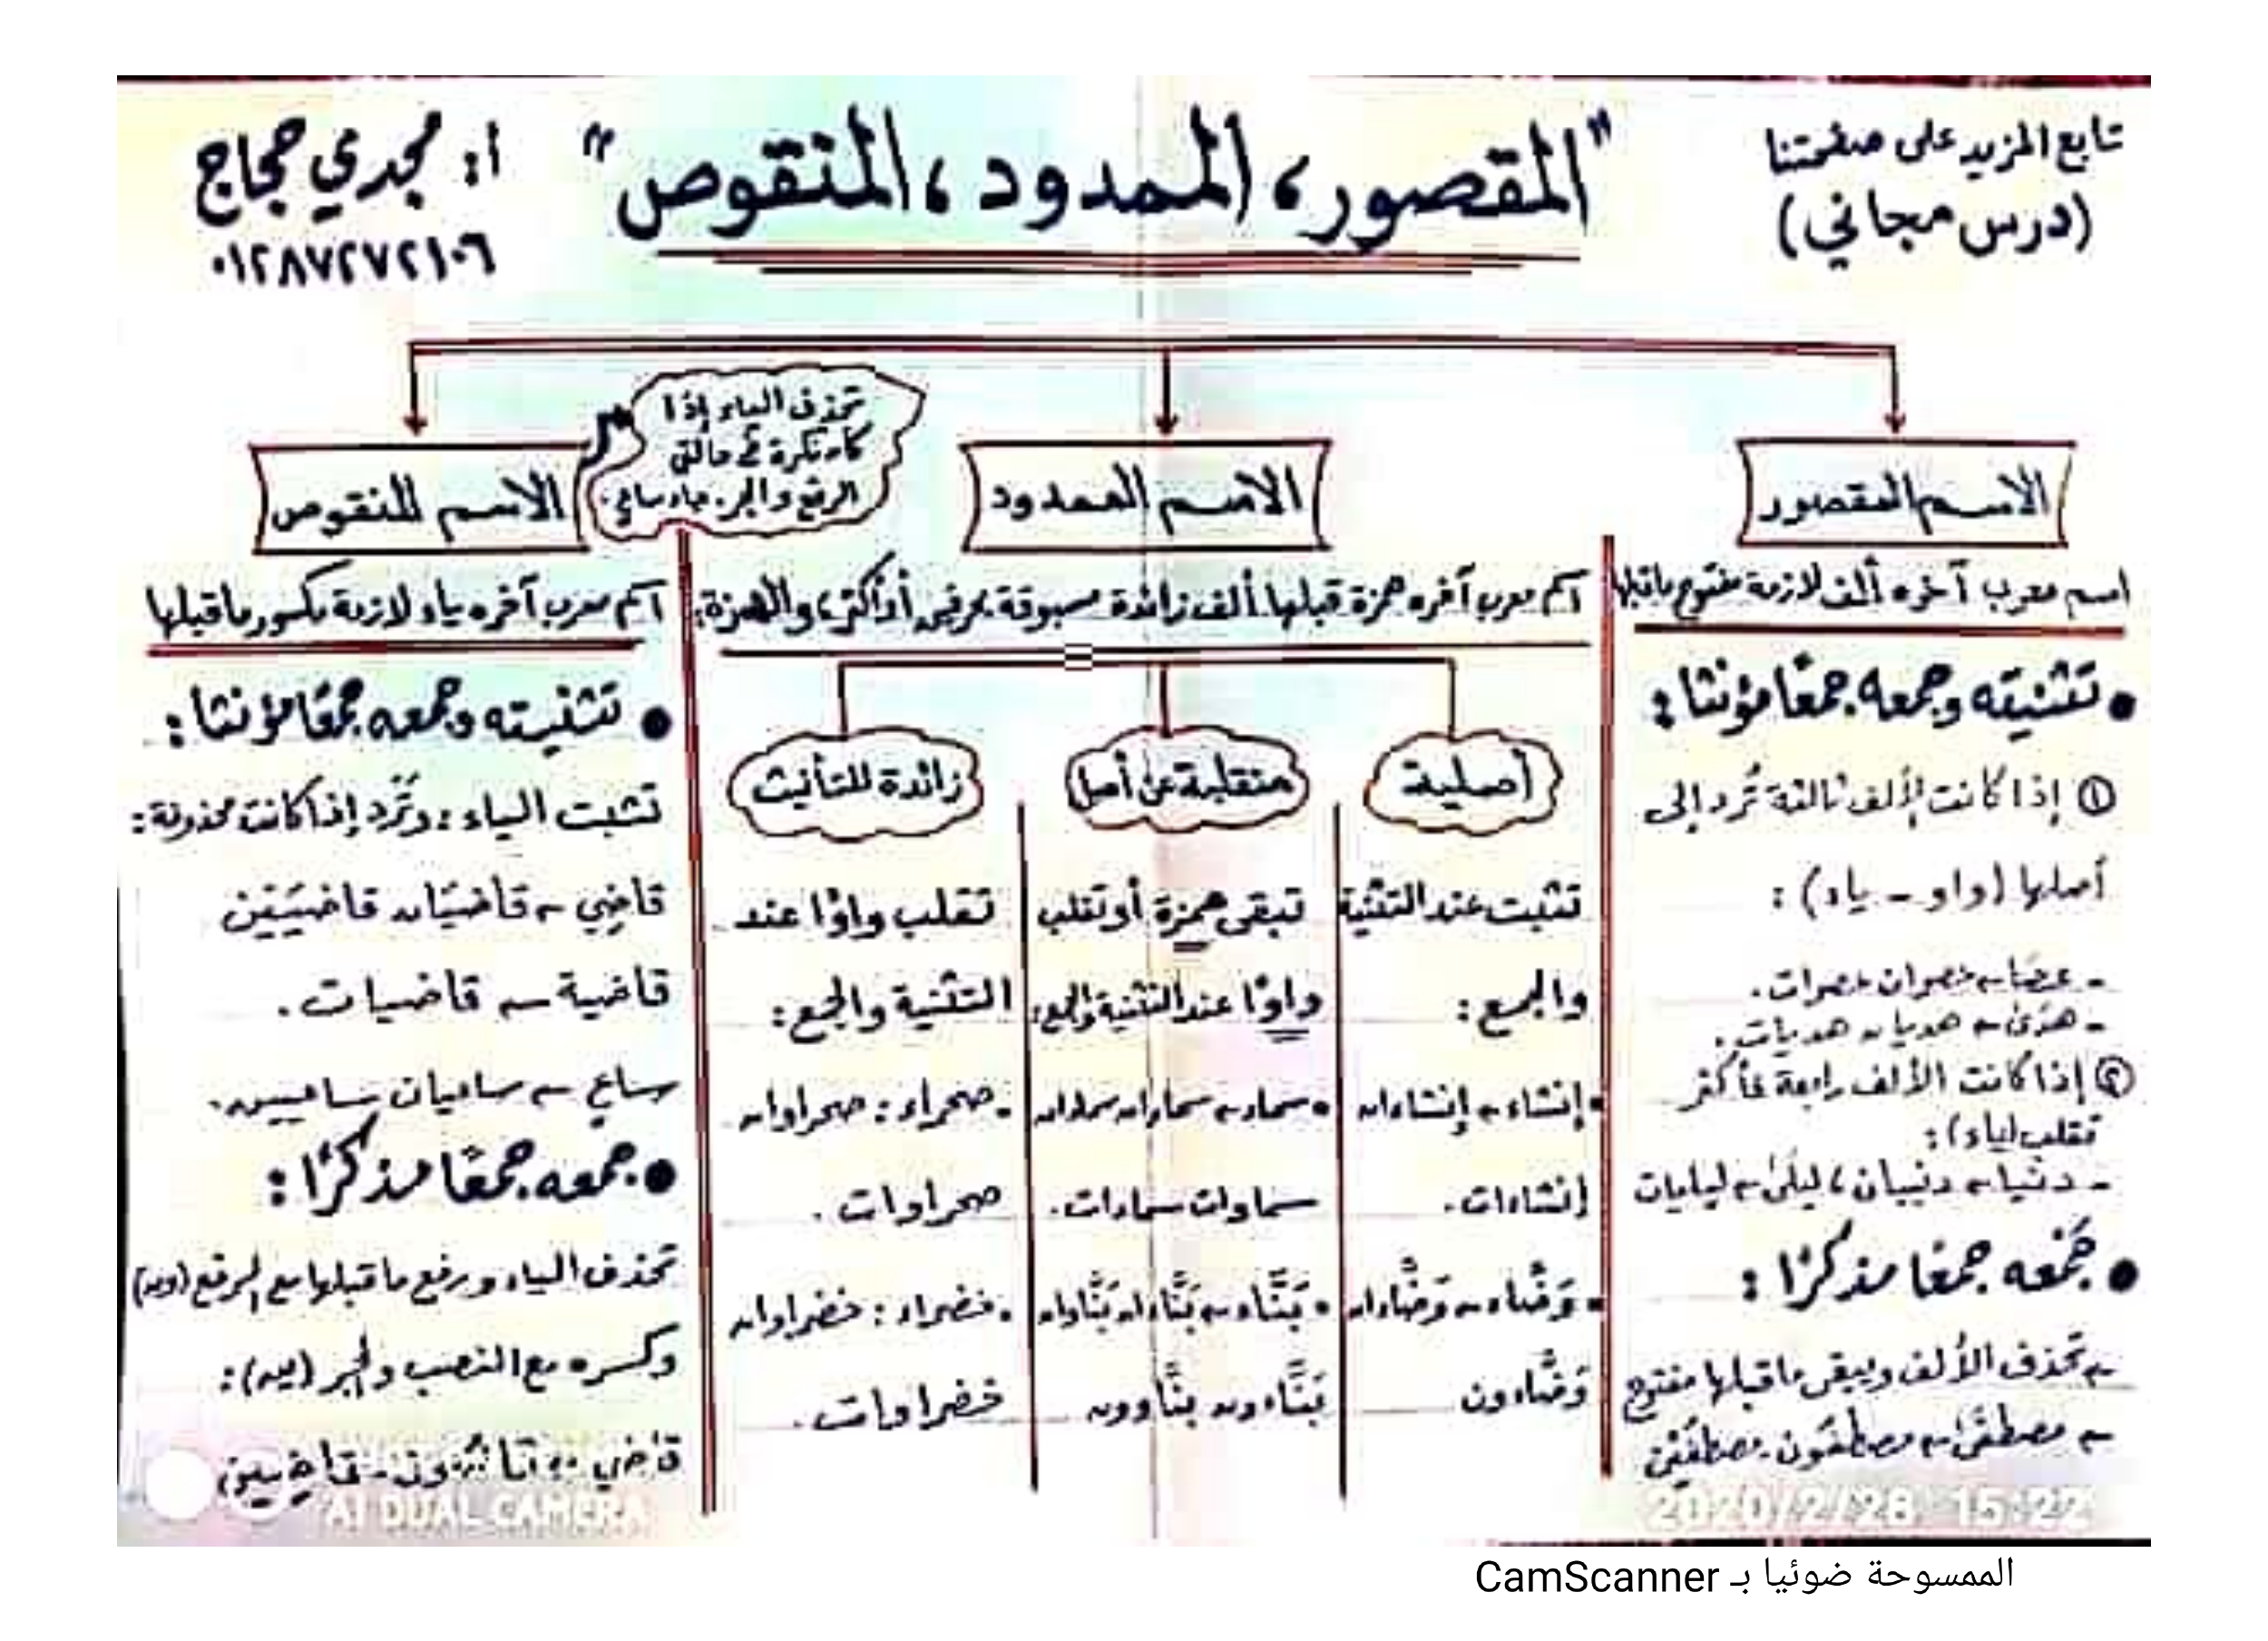 تابع المزيد على صفحتنا
(درس مجاني)
"المقصور، الممدود، المنقوص"
أ: مجدي حجاج
٠١٢٨٧٢٧٢١٠٦
الاسم المقصور
اسم معرب آخره ألف لازمة مفتوح ماقبلها
• تثنيته وجمعه جمعًا مؤنثا:
① إذا كانت الألف ثالثة تُرد إلى
أصلها (واو - ياء):
- عصا عصوان عصوات.
- هدى هديان هديات.
② إذا كانت الألف رابعة فأكثر
تقلب (ياء):
- دنيا دنييان، ليلى ليليات
• جَمْعه جمعًا مذكرًا:
تحذف الألف ويبقى ماقبلها مفتوح
مصطفى مصطفَون - مصطفَيْن
الاسم الممدود
اسم معرب آخره همزة قبلها ألف زائدة مسبوقة بحرفين أو أكثر، والهمزة:
أصلية
تثبت عند التثنية
والجمع:
• إنشاء إنشاءان
إنشاءات.
• وَضَّاء وَضَّاءان
وَضَّاءون
منقلبة عن أصل
تبقى همزة أو تقلب
واوًا عند التثنية والجمع:
• سماء سماءان سماوان
سماوات سماءات.
• بَنَّاء بَنَّاءان بَنَّاوان
بَنَّاءون بنَّاوون
زائدة للتأنيث
تقلب واوًا عند
التثنية والجمع:
• صحراء: صحراوان
صحراوات.
• خضراء: خضراوان
خضراوات.
الاسم المنقوص
تحذف الياء إذا
كان نكرة في حالتي
الرفع والجر. جاء ساعٍ.
اسم معرب آخره ياء لازمة مكسور ماقبلها
• تثنيته وجمعه جمعًا مؤنثا:
تثبت الياء: وتُرَد إذا كانت محذوفة:
قاضِي قاضيَان قاضيَيْن
قاضية قاضيات.
ساعٍ ساعيان ساعيين.
• جمعه جمعًا مذكرًا:
تحذف الياء ورفع ماقبلها مع الرفع (ون)
وكسره مع النصب والجر (ين):
قاضي قاضُون - قاضِين
AI DUAL CAMERA
2020/2/28 15:22
الممسوحة ضوئيا بـ CamScanner